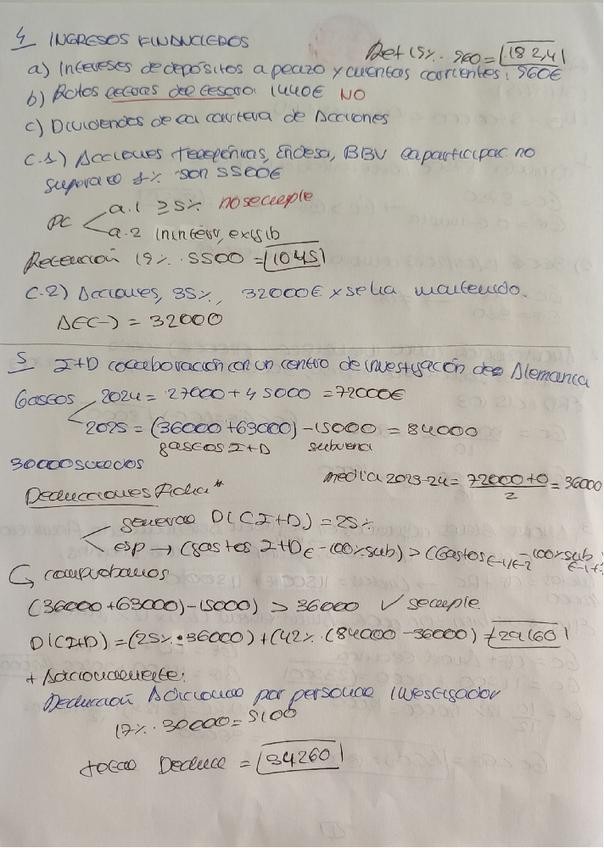 4 INGRESOS FINANCIEROS
Ret 19%. 960 = 182,4
a) Intereses de depósitos a plazo y cuentas corrientes: 960€
b) Botos letras del tesoro 1440€ NO
c) Dividendos de la cartera de Acciones
c.1) Acciones telefónica, Endesa, BBV la participac no
supera el % son 5500€
PC a.1 ≥5% no se cumple
a.2 ininterv, exsib
Retención 19%. 5500 = 1045
c.2) Acciones, 35%, 32000€ x se ha mantenido.
ΔE(-) = 32000
5 I+D colaboración con un centro de investigación de Alemania
Gastos 2024 = 27000 + 45000 = 72000€
2025 = (36000 + 63000) - 15000 = 84000
gastos I+D subvena
30000 sueldos
media 2023-24 = 72000+0 / 2 = 36000
Deducciones Ficha*
general D(CI+D) = 25%
esp → (gastos I+D t - 100% sub) > (Gastos t-1/t-2 - 100% sub t-1+
↳ comprobamos
(36000 + 63000) - 15000) > 36000 ✓ se cumple.
D(CI+D) = (25% · 36000) + (42%. (84000 - 36000) = 29160
+ Adicionalmente:
Deducción Adicional por personal investigador
17%. 30000 = 5100
total Deduce = 34260